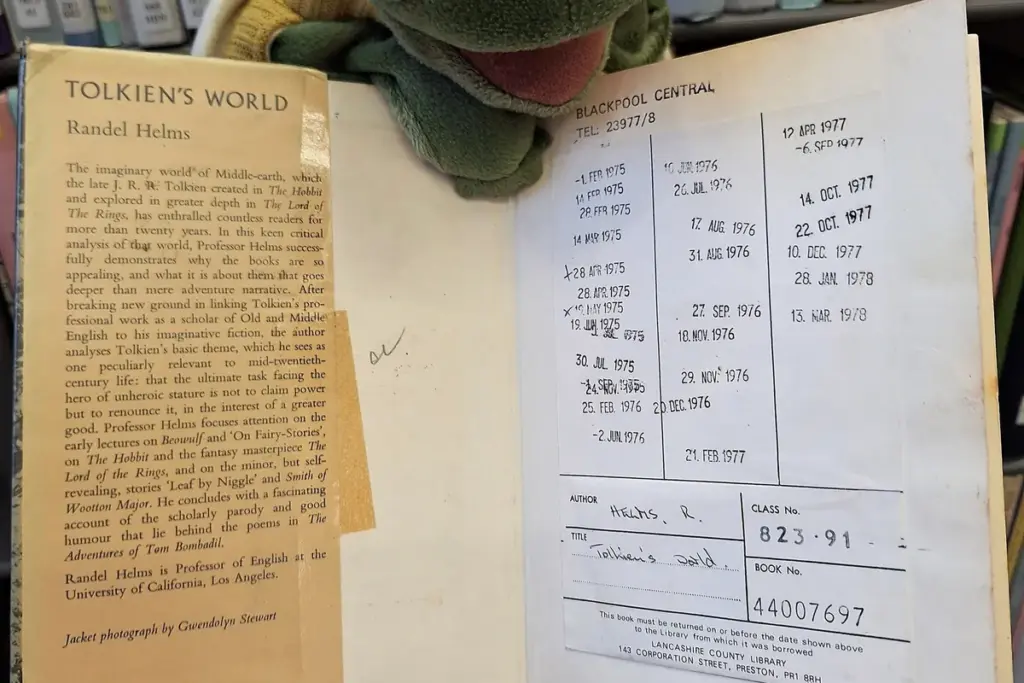 TOLKIEN'S WORLD
Randel Helms
The imaginary world of Middle-earth, which
the late J. R. R. Tolkien created in The Hobbit
and explored in greater depth in The Lord of
The Rings, has enthralled countless readers for
more than twenty years. In this keen critical
analysis of that world, Professor Helms success-
fully demonstrates why the books are so
appealing, and what it is about them that goes
deeper than mere adventure narrative. After
breaking new ground in linking Tolkien's pro-
fessional work as a scholar of Old and Middle
English to his imaginative fiction, the author
analyses Tolkien's basic theme, which he sees as
one peculiarly relevant to mid-twentieth-
century life: that the ultimate task facing the
hero of unheroic stature is not to claim power
but to renounce it, in the interest of a greater
good. Professor Helms focuses attention on the
early lectures on Beowulf and 'On Fairy-Stories',
on The Hobbit and the fantasy masterpiece The
Lord of the Rings, and on the minor, but self-
revealing, stories 'Leaf by Niggle' and Smith of
Wootton Major. He concludes with a fascinating
account of the scholarly parody and good
humour that lie behind the poems in The
Adventures of Tom Bombadil.
Randel Helms is Professor of English at the
University of California, Los Angeles.
Jacket photograph by Gwendolyn Stewart
BLACKPOOL CENTRAL
TEL: 23977/8
-1. FEB 1975
14 FEB 1975
28 FEB 1975
14 MAR 1975
28 APR 1975
28. APR. 1975
MAY 1975
19. JUN 1975
JUL 1975
30. JUL 1975
SEP. 1975
24. NOV. 1975
25. FEB. 1976
-2. JUN. 1976
JUN. 1976
26. JUL. 1976
17. AUG 1976
31. AUG 1976
27. SEP 1976
18. NOV. 1976
29. NOV. 1976
20. DEC. 1976
21. FEB. 1977
12 APR 1977
-6. SEP 1977
14. OCT. 1977
22. OCT. 1977
10. DEC. 1977
28. JAN. 1978
13. MAR. 1978
AUTHOR
HELMS, R.
TITLE
Tolkien's world.
CLASS No.
823.91
BOOK No.
44007697
This book must be returned on or before the date shown above
to the Library from which it was borrowed
LANCASHIRE COUNTY LIBRARY
143 CORPORATION STREET, PRESTON, PR1 8RH